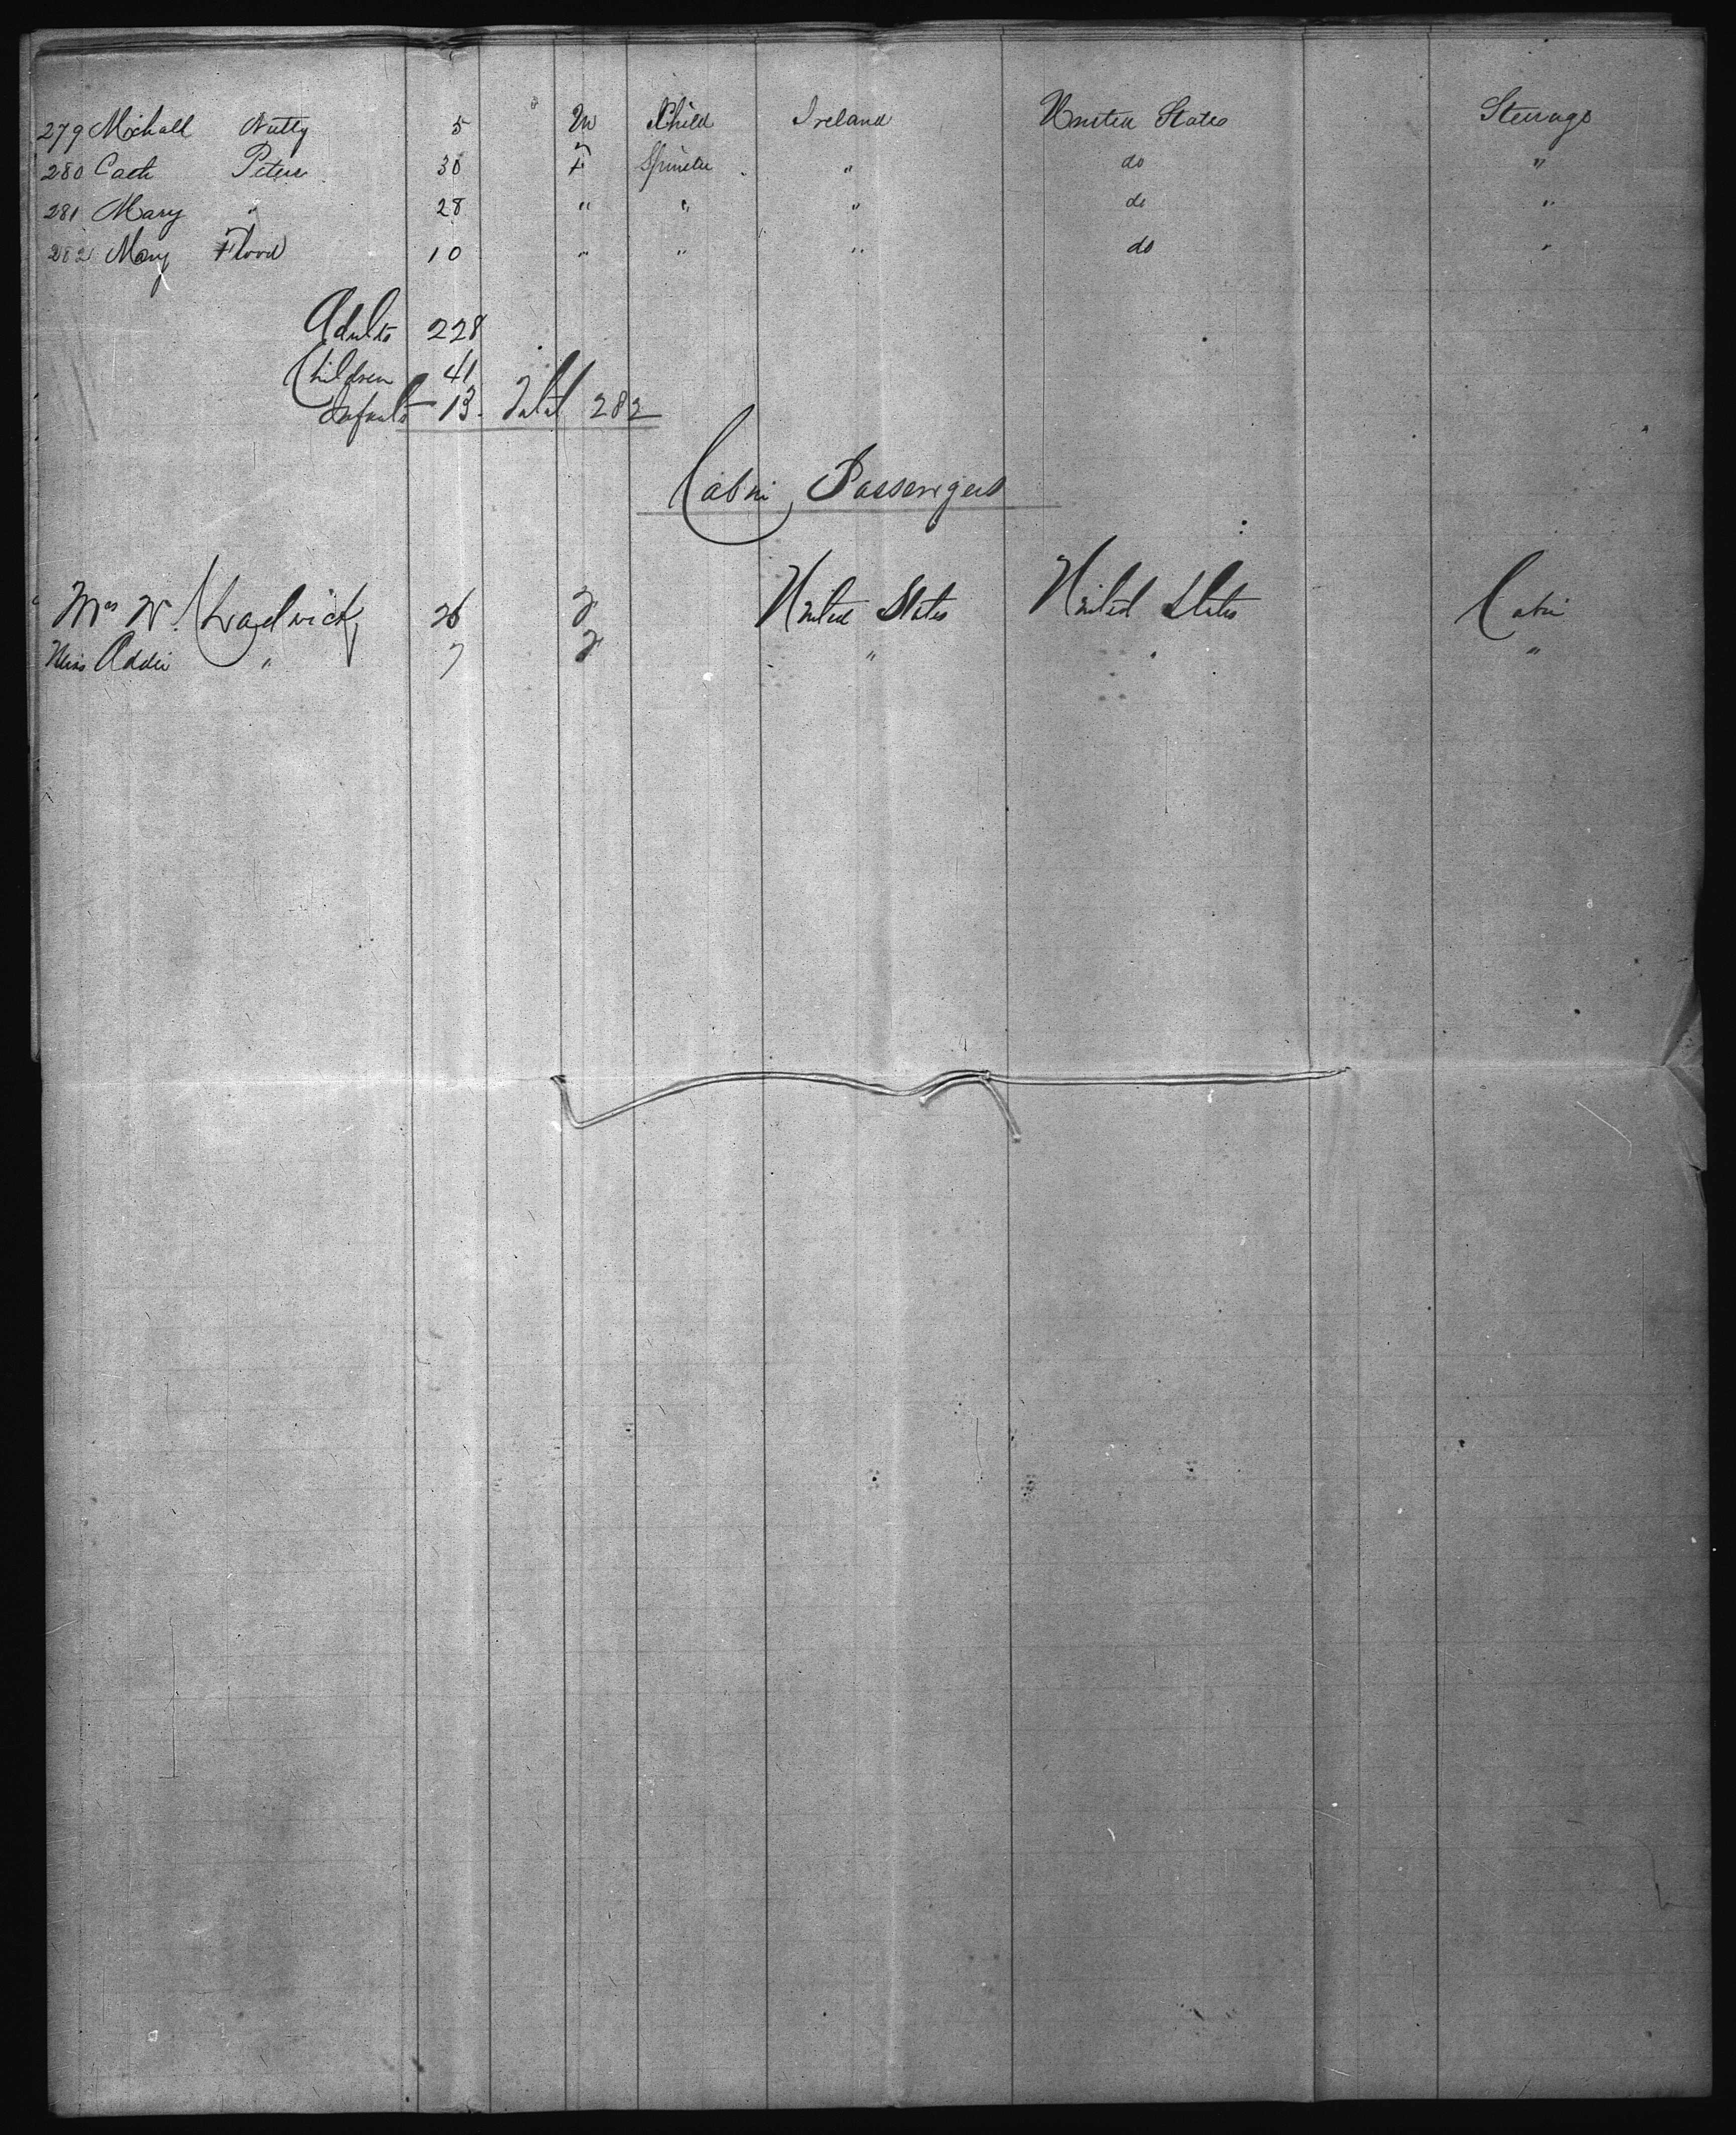 279 Michall Nutty 5 M Child Ireland United States Steerage
280 Cath Peters 30 F Spinster " do "
281 Mary " 28 " " " do "
282 Mary Flood 10 " " " do "
Adults 228
Children 41
Infants 13. Total 282
Cabin Passengers
Mrs W. Chadwick 26 F United States United States Cabin
Miss Addie " 7 F " " "